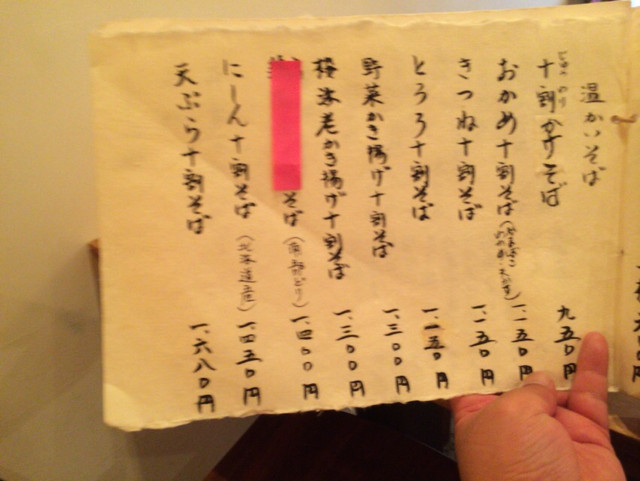 温かいそば
十割かけそば
じゅう わり
九五〇円
おかめ十割そば
一、一五〇円
きつね十割そば
一、一五〇円
とろろ十割そば
一、一五〇円
野菜かき揚げ十割そば
一、三〇〇円
桜海老かき揚げ十割そば
一、三〇〇円
そば(南部どり)
一、四〇〇円
にしん十割そば(北海道産)
一、四五〇円
天ぷら十割そば
一、六八〇円